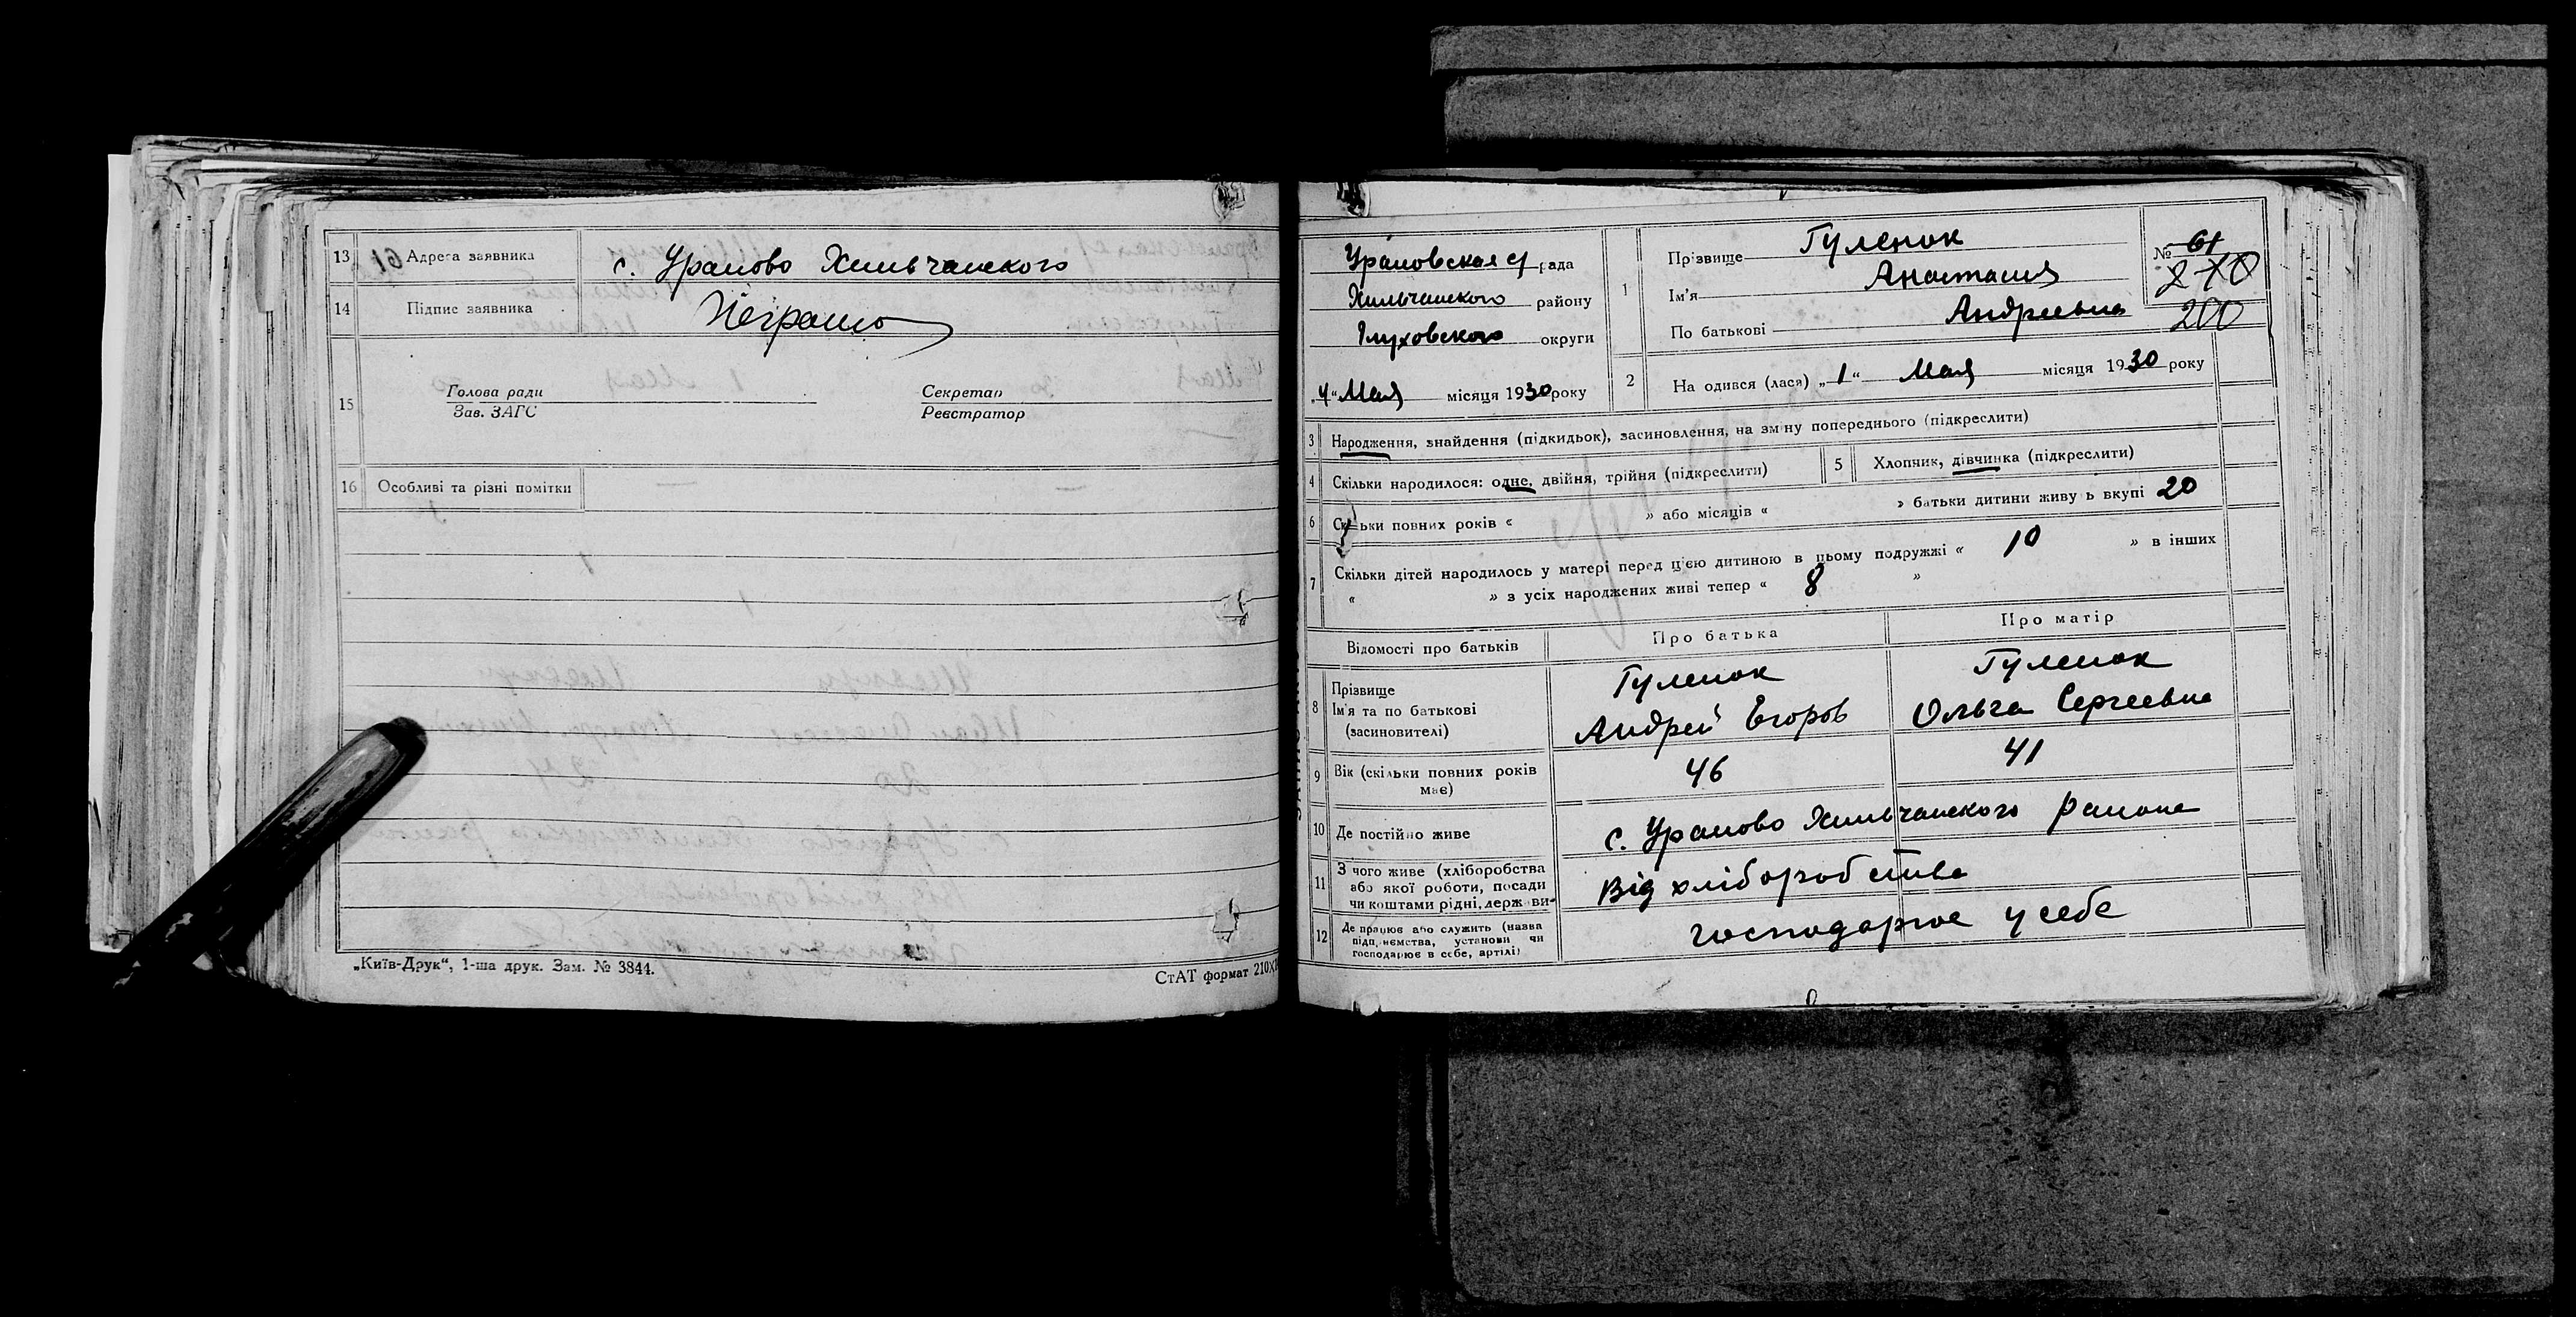 13 Адреса заявника с. Ураково Хильчанского
14 Підпис заявника Неграмо
15 Голова ради Секретар
Зав. ЗАГС Реєстратор
16 Особливі та різні помітки — —
„Київ-Друк“, 1-ша друк. Зам. № 3844.
СтАТ формат 210X
рада
Хильчанского району
Глуховского округи
„4“ Мая місяця 1930 року
1 Прізвище Гуленок
Ім'я Анастасия
По батькові Андреевна
№ 61
270
200
2 На одився (лася) „1“ Мая місяця 1930 року
3 Народження, знайдення (підкидьок), засиновлення, на зміну попереднього (підкреслити)
4 Скільки народилося: одне, двійня, трійня (підкреслити)
5 Хлопчик, дівчинка (підкреслити)
6 Скільки повних років « » або місяців « » батьки дитини живу ь вкупі 20
7 Скільки дітей народилось у матері перед цією дитиною в цьому подружжі « 10 » в інших
« » з усіх народжених живі тепер « 8 »
Відомості про батьків Про батька Про матір
8 Прізвище Гуленок Гуленок
Ім'я та по батькові Андрей Егоров Ольга Сергеевна
(засиновителі)
9 Вік (скільки повних років має) 46 41
10 Де постійно живе с. Ураково Хильчанского района
11 З чого живе (хліборобства
або якої роботи, посади
чи коштами рідні, держави
Від хліборобства
12 Де працює або служить (назва
підприємства, установи чи
господарює в себе, артілі)
господарює у себе